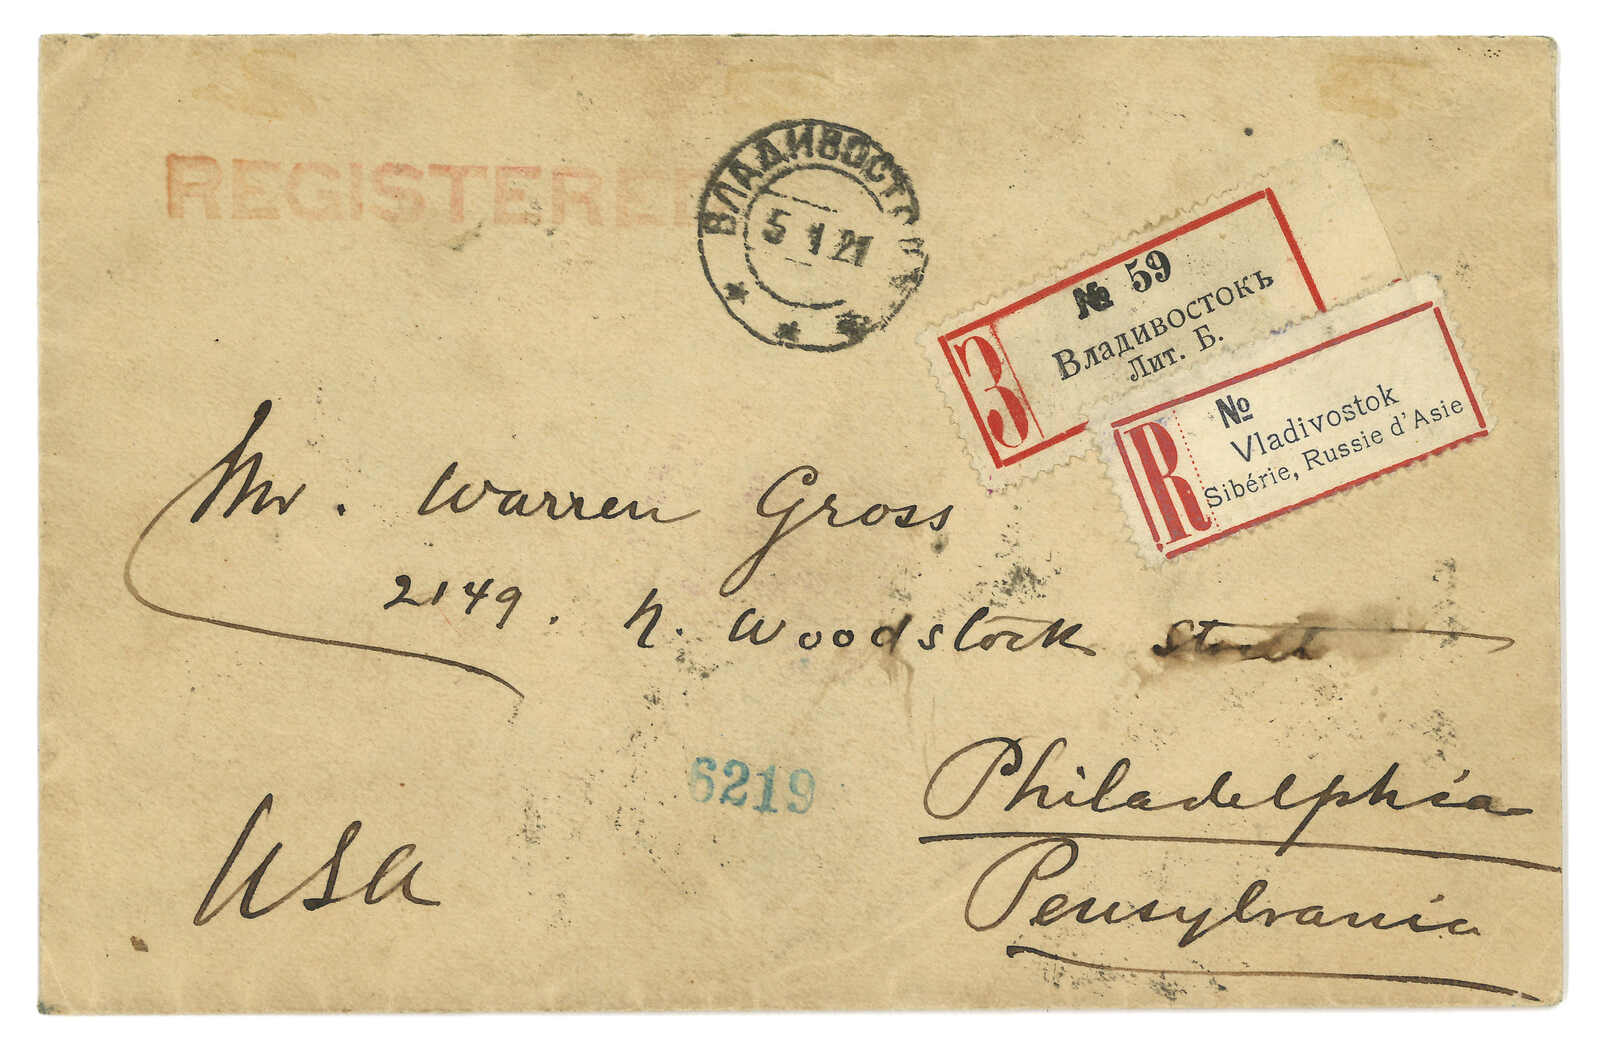 REGISTERED
ВЛАДИВОСТОК
5 1 21
З
№ 59
Владивостокъ
Лит. Б.
R
№
Vladivostok
Sibérie, Russie d'Asie
Mr. Warren Gross
2149. N. Woodstock Street
6219
Philadelphia
Pensylvania
USA